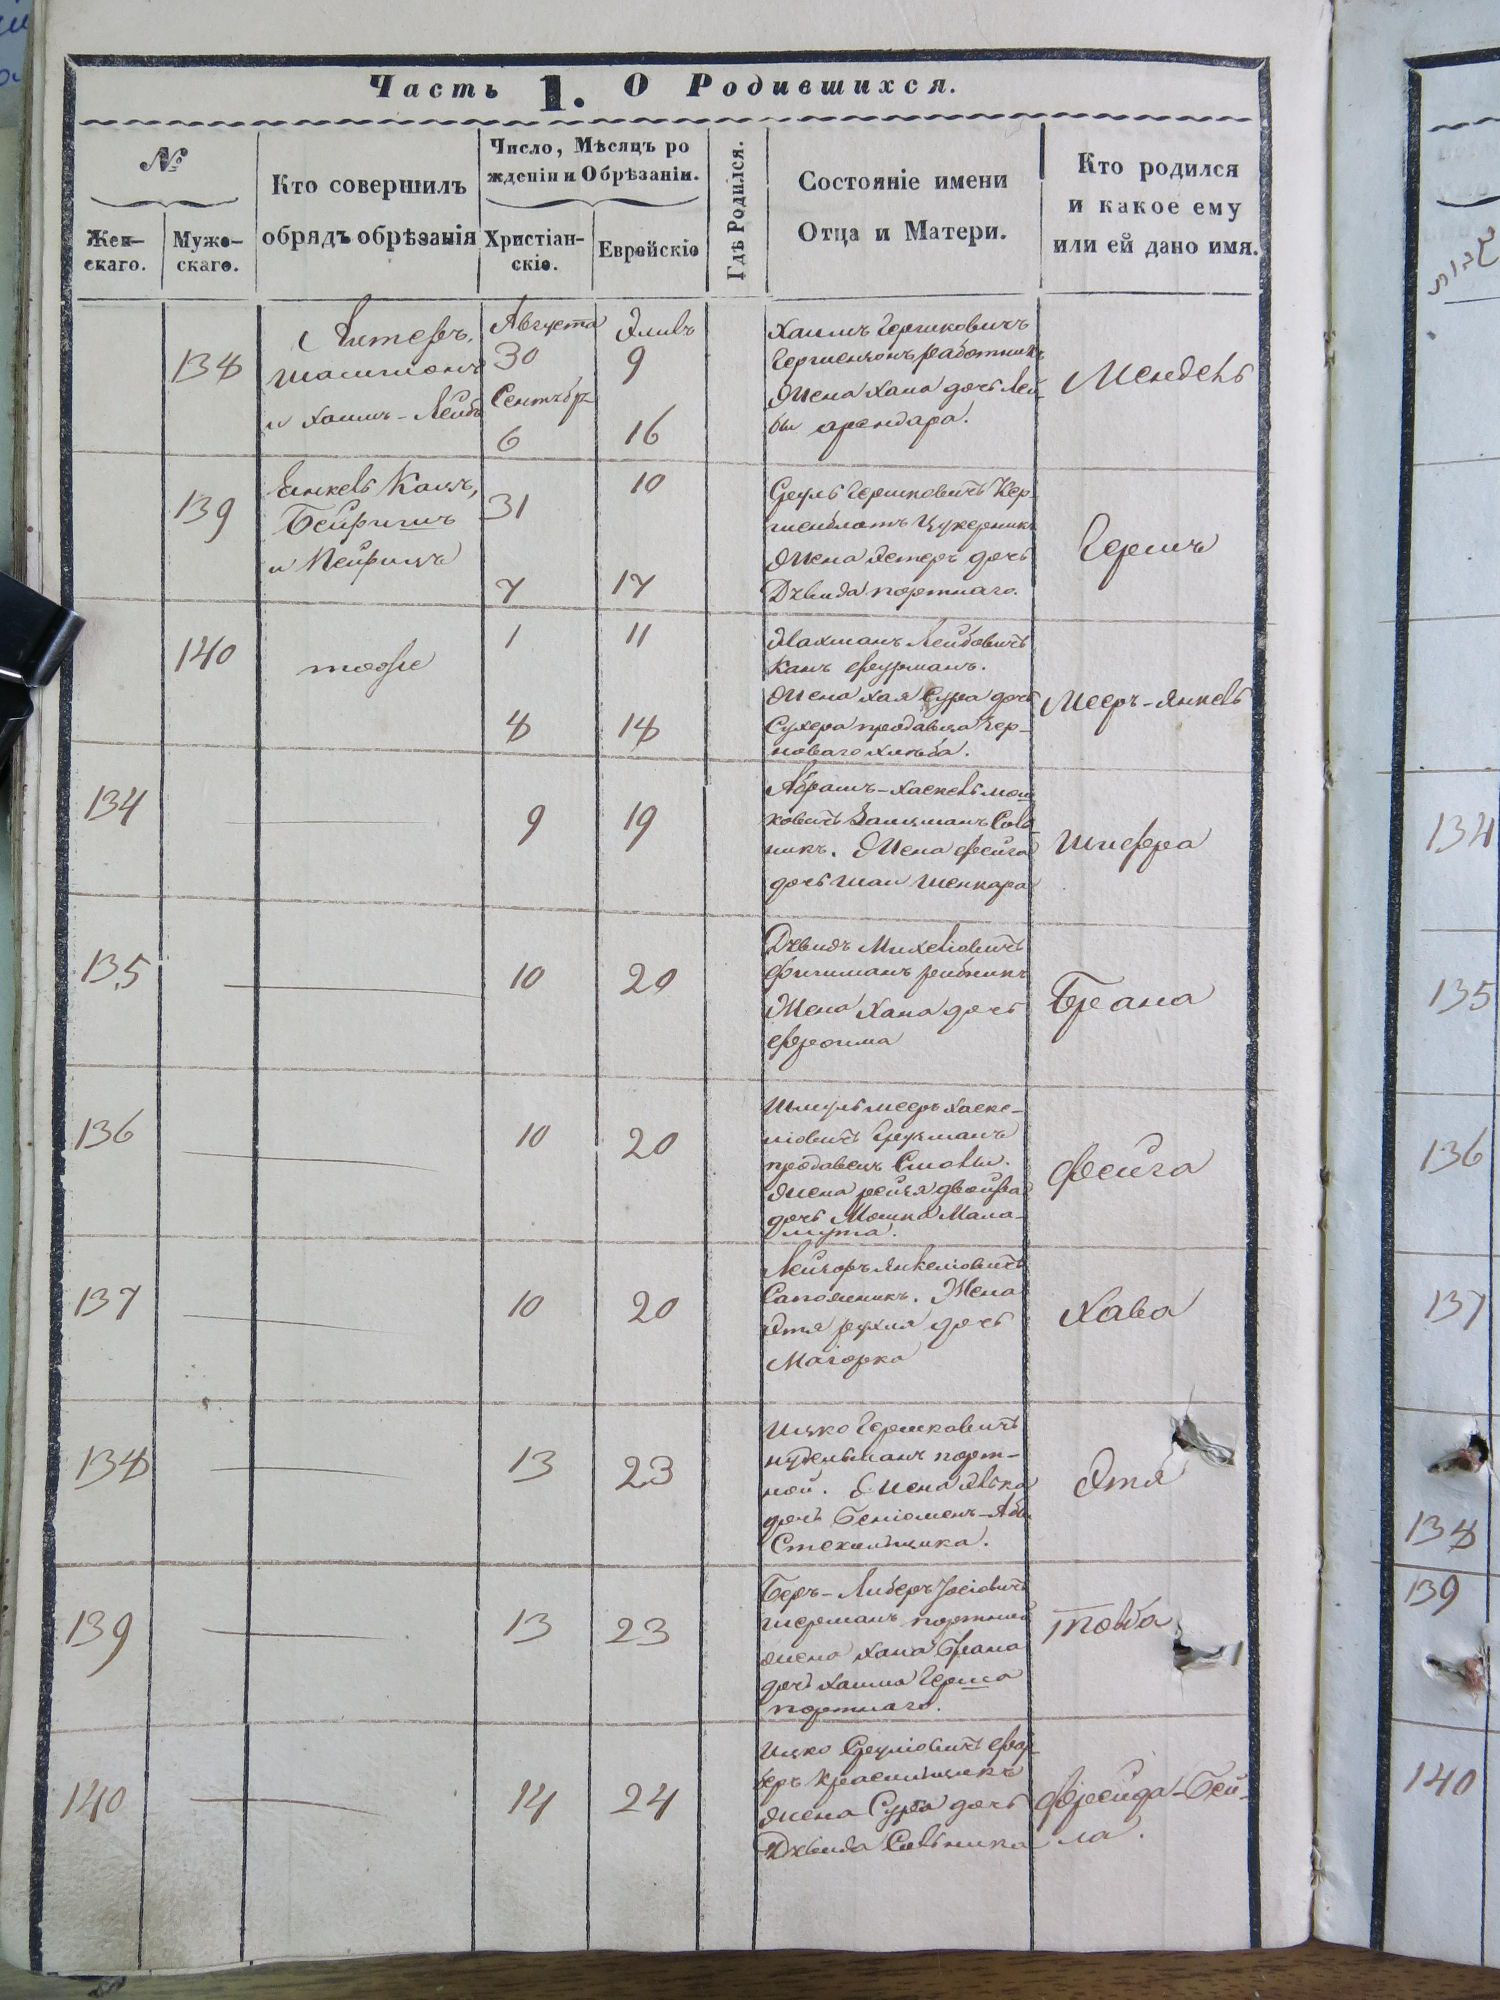 Часть 1. О Родившихся.
№
Жен-
скаго.
Муже-
скаго.
Кто совершилъ
обрядъ обрѣзанія
Число, Мѣсяцъ ро
жденіи и Обрѣзаніи.
Христіан-
скіе.
Еврейскіе
Гдѣ Родился.
Состояніе имени
Отца и Матери.
Кто родился
и какое ему
или ей дано имя.
138
и Хаимъ-Лейбъ
Августа
30
Сентябр
6
9
16
Хаимъ Гершковичъ
работникъ
Жена Хана дочь Лей-
бы арендара.
Мендель
139
Янкель Кацъ,
31
7
10
17
Сруль Гершковичъ Кер-
Жена Эстеръ дочь
Двида портнаго.
Гершъ
140
тоже
1
8
11
18
Нахманъ Лейбовичъ
Канъ фурманъ.
Жена Хая Сура дочь
Сухера продавца чер-
новаго хлѣба.
Мееръ-Янкель
134
9
19
Абрамъ-Хаскель Мош
ковичъ Зальцманъ
никъ. Жена Фейга
дочь Шаи Шенкара
Шифра
135
10
20
Двидъ Михелiовичъ
Фишманъ рибникъ
Жена Хана дочь
Фроима
Брана
136
10
20
Шмуль Мееръ Хаске-
лiовичъ
продавецъ Смолы.
Жена Рейзя Двойра
дочь Мошка Мала-
мута.
Фейга
137
10
20
Лейзоръ Янкелiовичъ
Сапожникъ. Жена
Этя Рухля дочь
Маiорка
Хава
138
13
23
Ицко Гершковичъ
Нудельманъ порт-
ной. Жена
дочь
Стекильщика.
Этя
139
13
23
Беръ-Либеръ Iосiовичъ
Шерманъ портной
жена Хана Брана
дочь Хаима Герша
портнаго.
Товба
140
14
24
Ицко Срулiовичъ Фар-
беръ Красильщикъ
жена Сура дочь
Двида Сольника
Фрейда-Бей-
ла.
134
135
136
137
138
139
140